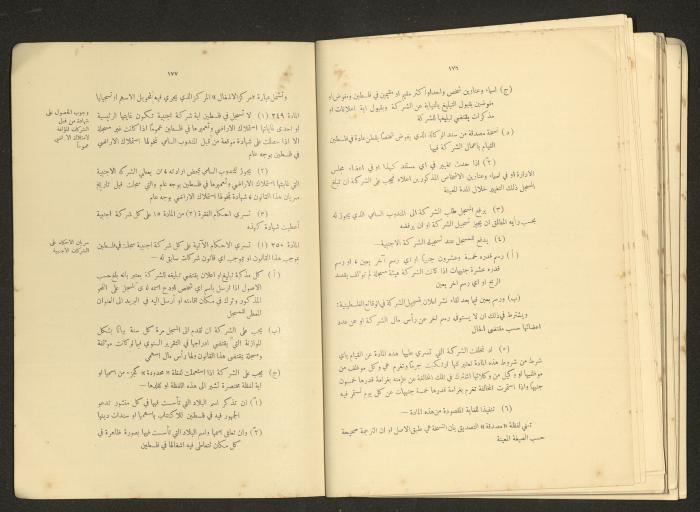 ١٧٦
(ج) اسماء وعناوين شخص واحد او اكثر مقيم او مقيمين في فلسطين ومفوض او
مفوضين بقبول التبليغ بالنيابة عن الشركة وبقبول اية اعلانات او
مذكرات يقتضي تبليغها للشركة
(د) نسخة مصدقة من سند الوكالة الذي يفوض شخصاً يقطن عادة في فلسطين
القيام باعمال الشركة فيها
(٢) اذا حدث تغيير في اي مستند كهذا او في اعضاء مجلس
الادارة او في اسماء وعناوين الاشخاص المذكورين اعلاه فيجب على الشركة ان تبلغ
المسجل ذلك التغيير خلال المدة المعينة
(٣) يرفع المسجل طلب الشركة الى المندوب السامي الذي يجوز له
بحسب رأيه المطلق ان يجيز تسجيل الشركة او ان يرفضه
(٤) يدفع للمسجل عند تسجيله الشركة الاجنبية—
(أ) رسم قدره خمسة وعشرون جنيهاً او اي رسم آخر يعين ٤ او رسم
قدره عشرة جنيهات اذا كانت الشركة هيئة مسجلة لم تؤلف بقصد
الربح او اي رسم آخر يعين
(ب) ورسم يعين فيما بعد لقاء نشر اعلان بتسجيل الشركة في الوقائع الفلسطينية ؛
ويشترط في ذلك ان لا يستوفى رسم آخر عن رأس مال الشركة او عن عدد
اعضائها حسب مقتضى الحال
(٥) اذ تخلفت الشركة التي تسري عليها هذه المادة عن القيام باي
شرط من شروط هذه المادة تعتبر انها ارتكبت جرماً وتغرم هي وكل موظف من
موظفيها او وكيل من وكلائها اشترك في تلك المخالفة عن علم منه بغرامة قدرها خمسون
جنيهاً واذا استمرت المخالفة تغرم بغرامة قدرها خمسة جنيهات عن كل يوم تستمر فيه
(٦) تنفيذاً للغاية المقصودة من هذه المادة —
تعني لفظة « مصدقة » التصديق بان النسخة هي طبق الاصل او ان الترجمة صحيحة
حسب الصيغة المعينة
١٧٧
وتشمل عبارة « مركز الاشغال » المركز الذي يجري فيه تحويل الاسهم او تسجيلها
المادة ٢٤٩ (١) لا تسجل في فلسطين اية شركة اجنبية تكون غايتها الرئيسية
او احدى غاياتها استملاك الاراضي وتعميرها في فلسطين عموماً اذا كانت غير مسجلة
الا اذا حصلت على شهادة موقعة من قبل المندوب السامي تخولها استملاك الاراضي
في فلسطين بوجه عام
وجوب الحصول على
شهادة من قبل
الشركات المؤلفة
لاستملاك الاراضي
عموماً
(٢) يجوز للمندوب السامي بمحض ارادته ٤ ان يعطي الشركة الاجنبية
التي غايتها استملاك الاراضي وتعميرها في فلسطين بوجه عام والتي سجلت قبل تاريخ
سريان هذا القانون ٤ شهادة تخولها استملاك الاراضي بوجه عام
(٣) تسري احكام الفقرة (٢) من المادة ١٥ على كل شركة اجنبية
أعطيت شهادة كهذه
المادة ٢٥٠ (١) تسري الاحكام الآتية على كل شركة اجنبية سجلت في فلسطين
بموجب هذا القانون او بموجب اي قانون شركات سابق له —
سريان الاحكام على
الشركات الاجنبية
(أ) كل مذكرة تبليغ او اعلان يقتضي تبليغه للشركة يعتبر بانه بلغ حسب
الاصول اذا ارسل باسم اي شخص يوجد اسمه لدى المسجل على النحو
المذكور وترك في مكان اقامته او أرسل اليه في البريد الى العنوان
المعطى للمسجل
(ب) يجب على الشركة ان تقدم الى المسجل مرة كل سنة بياناً بشكل
الموازنة التي يقتضي ادراجها في التقرير السنوي فيما لو كانت مؤلفة
ومسجلة بمقتضى هذا القانون ولها رأس مال اسهمي
(ج) يجب على الشركة اذا استعملت لفظة « محدودة » كجزء من اسمها او
اية لفظة مختصرة تشير الى هذه اللفظة او تفيدها —
(١ً) ان تذكر اسم البلاد التي تأسست فيها في كل منشور تدعو
الجمهور فيه في فلسطين للاكتتاب باسهمها او سندات دينها
(٢ً) وان تعلق اسمها واسم البلاد التي تأسست فيها بصورة ظاهرة في
كل مكان تتعاطى فيه اشغالها في فلسطين